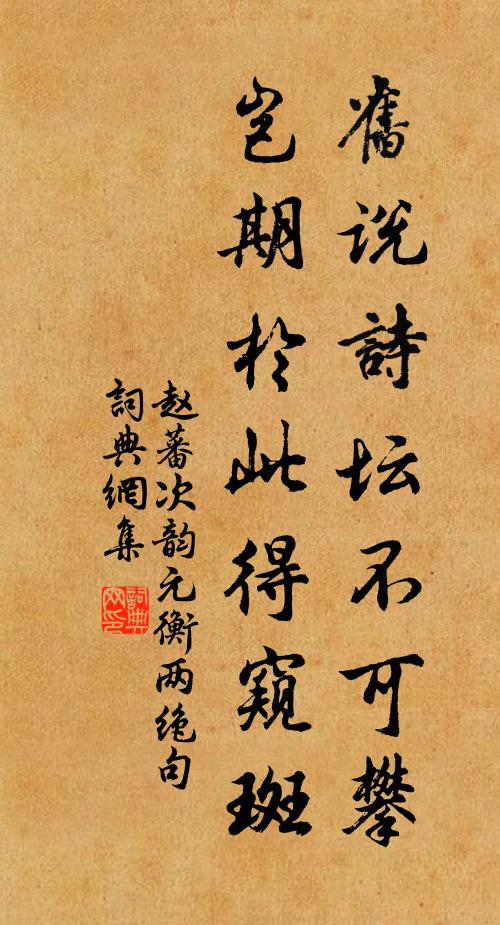 舊说詩坛不可攀
岂期於此得窺斑
赵蕃次韵元衡两绝句
詞典網集
詞典网印